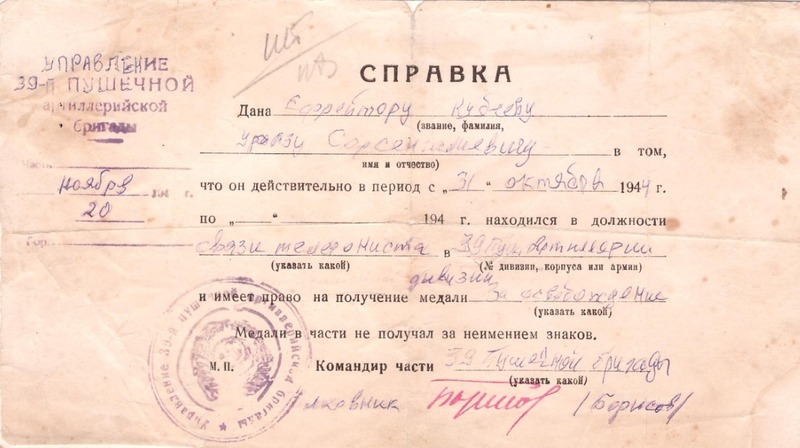 УПРАВЛЕНИЕ
39-й ПУШЕЧНОЙ
артиллерийской
бригады
Часть
ноября 194 г.
20
Гор.
СПРАВКА
Дана Ефрейтору Кубееву
(звание, фамилия,
Уразу Сарсенгалиевичу в том,
имя и отчество)
что он действительно в период с „31“ октября 1944 г.
по „ “ 194 г. находился в должности
связи телефониста в 39 Пуш артиллерии
(указать какой) (№ дивизии, корпуса или армии)
дивизии
и имеет право на получение медали За освобождение
(указать какой)
Медали в части не получал за неимением знаков.
М. П. Командир части 39 Пушечной бригады
(указать какой)
Управление 39-й пушечной артиллерийской бригады
/Борисов/